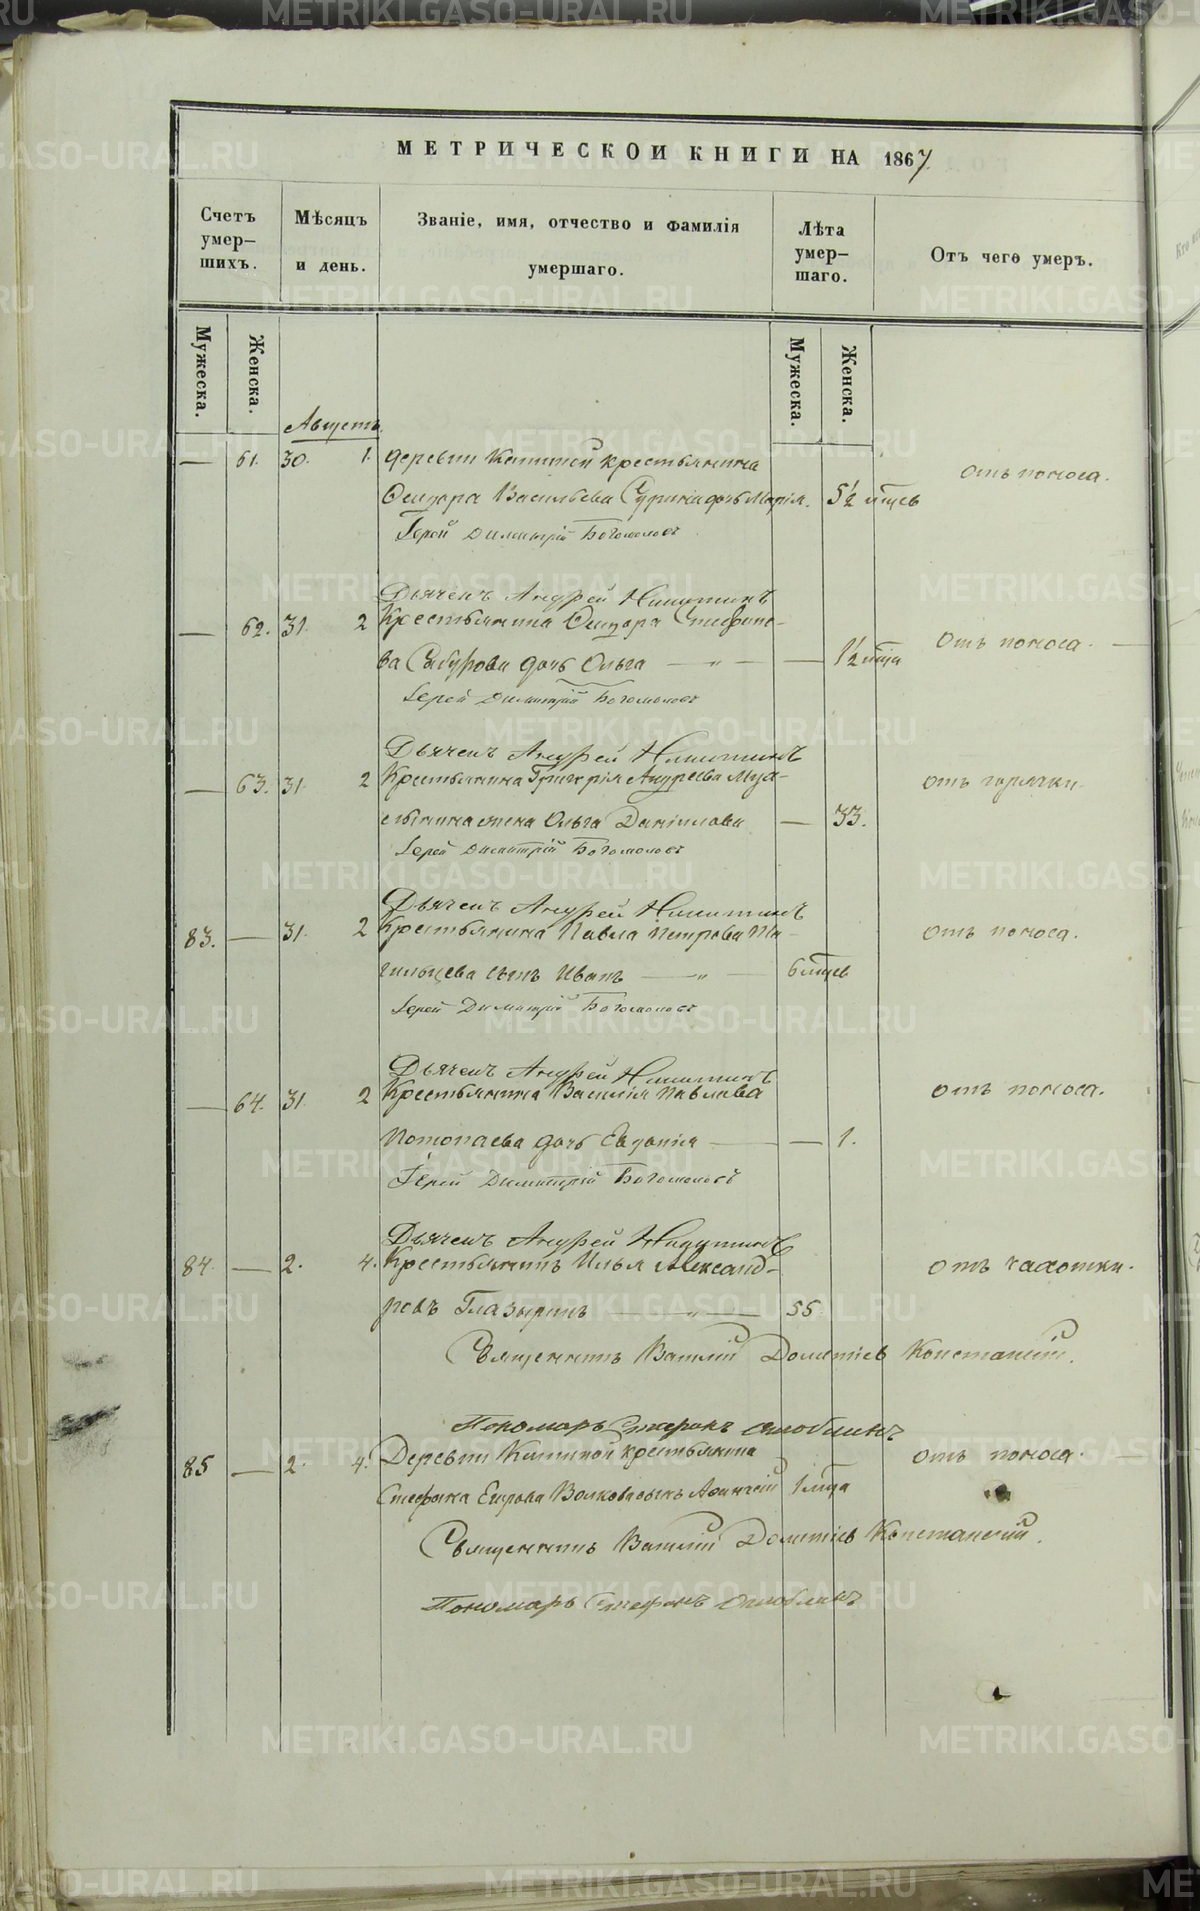 МЕТРИЧЕСКОЙ КНИГИ НА 1867.
Счетъ умер-
шихъ.
Мѣсяцъ
и день.
Званіе, имя, отчество и фамилія
умершаго.
Лѣта
умер-
шаго.
Отъ чего умеръ.
Мужеска.
Женска.
Мужеска.
Женска.
Августъ.
— 61. 30. 1. деревни крестьянина
Васильева дочь Марія. 5½ мцевъ отъ поноса.
Іерей Димитрій Богомоловъ
Дьячекъ Андрей Никитинъ
— 62. 31. 2 Крестьянина Стефано-
ва Сабурова дочь Ольга — „ — — 1½ мца отъ поноса. —
Іерей Димитрій Богомоловъ
Дьячекъ Андрей Никитинъ
— 63. 31. 2 Крестьянина Григорія Андреева
жена Ольга Даніилова — 33. отъ горячки.
Іерей Димитрій Богомоловъ
Дьячекъ Андрей Никитинъ
83. — 31. 2 Крестьянина Павла Петрова Та-
гильцева сынъ Иванъ — „ — 6 мцевъ отъ поноса.
Іерей Димитрій Богомоловъ
Дьячекъ Андрей Никитинъ
— 64. 31. 2 Крестьянина Василія Павлова
Потопаева дочь Евдокія — — 1. отъ поноса.
Іерей Димитрій Богомоловъ
Дьячекъ Андрей Никитинъ
84. — 2. 4. Крестьянинъ Илья Александ-
ровъ Глазыринъ — „ — 55 отъ чахотки.
Священникъ Василій Дометіевъ
Пономарь Стефанъ
85 — 2. 4. Деревни крестьянина
Стефана Егорова Волкова сынъ 1 мца отъ поноса. —
Священникъ Василій Дометіевъ
Пономарь Стефанъ
METRIKI.GASO-URAL.RU